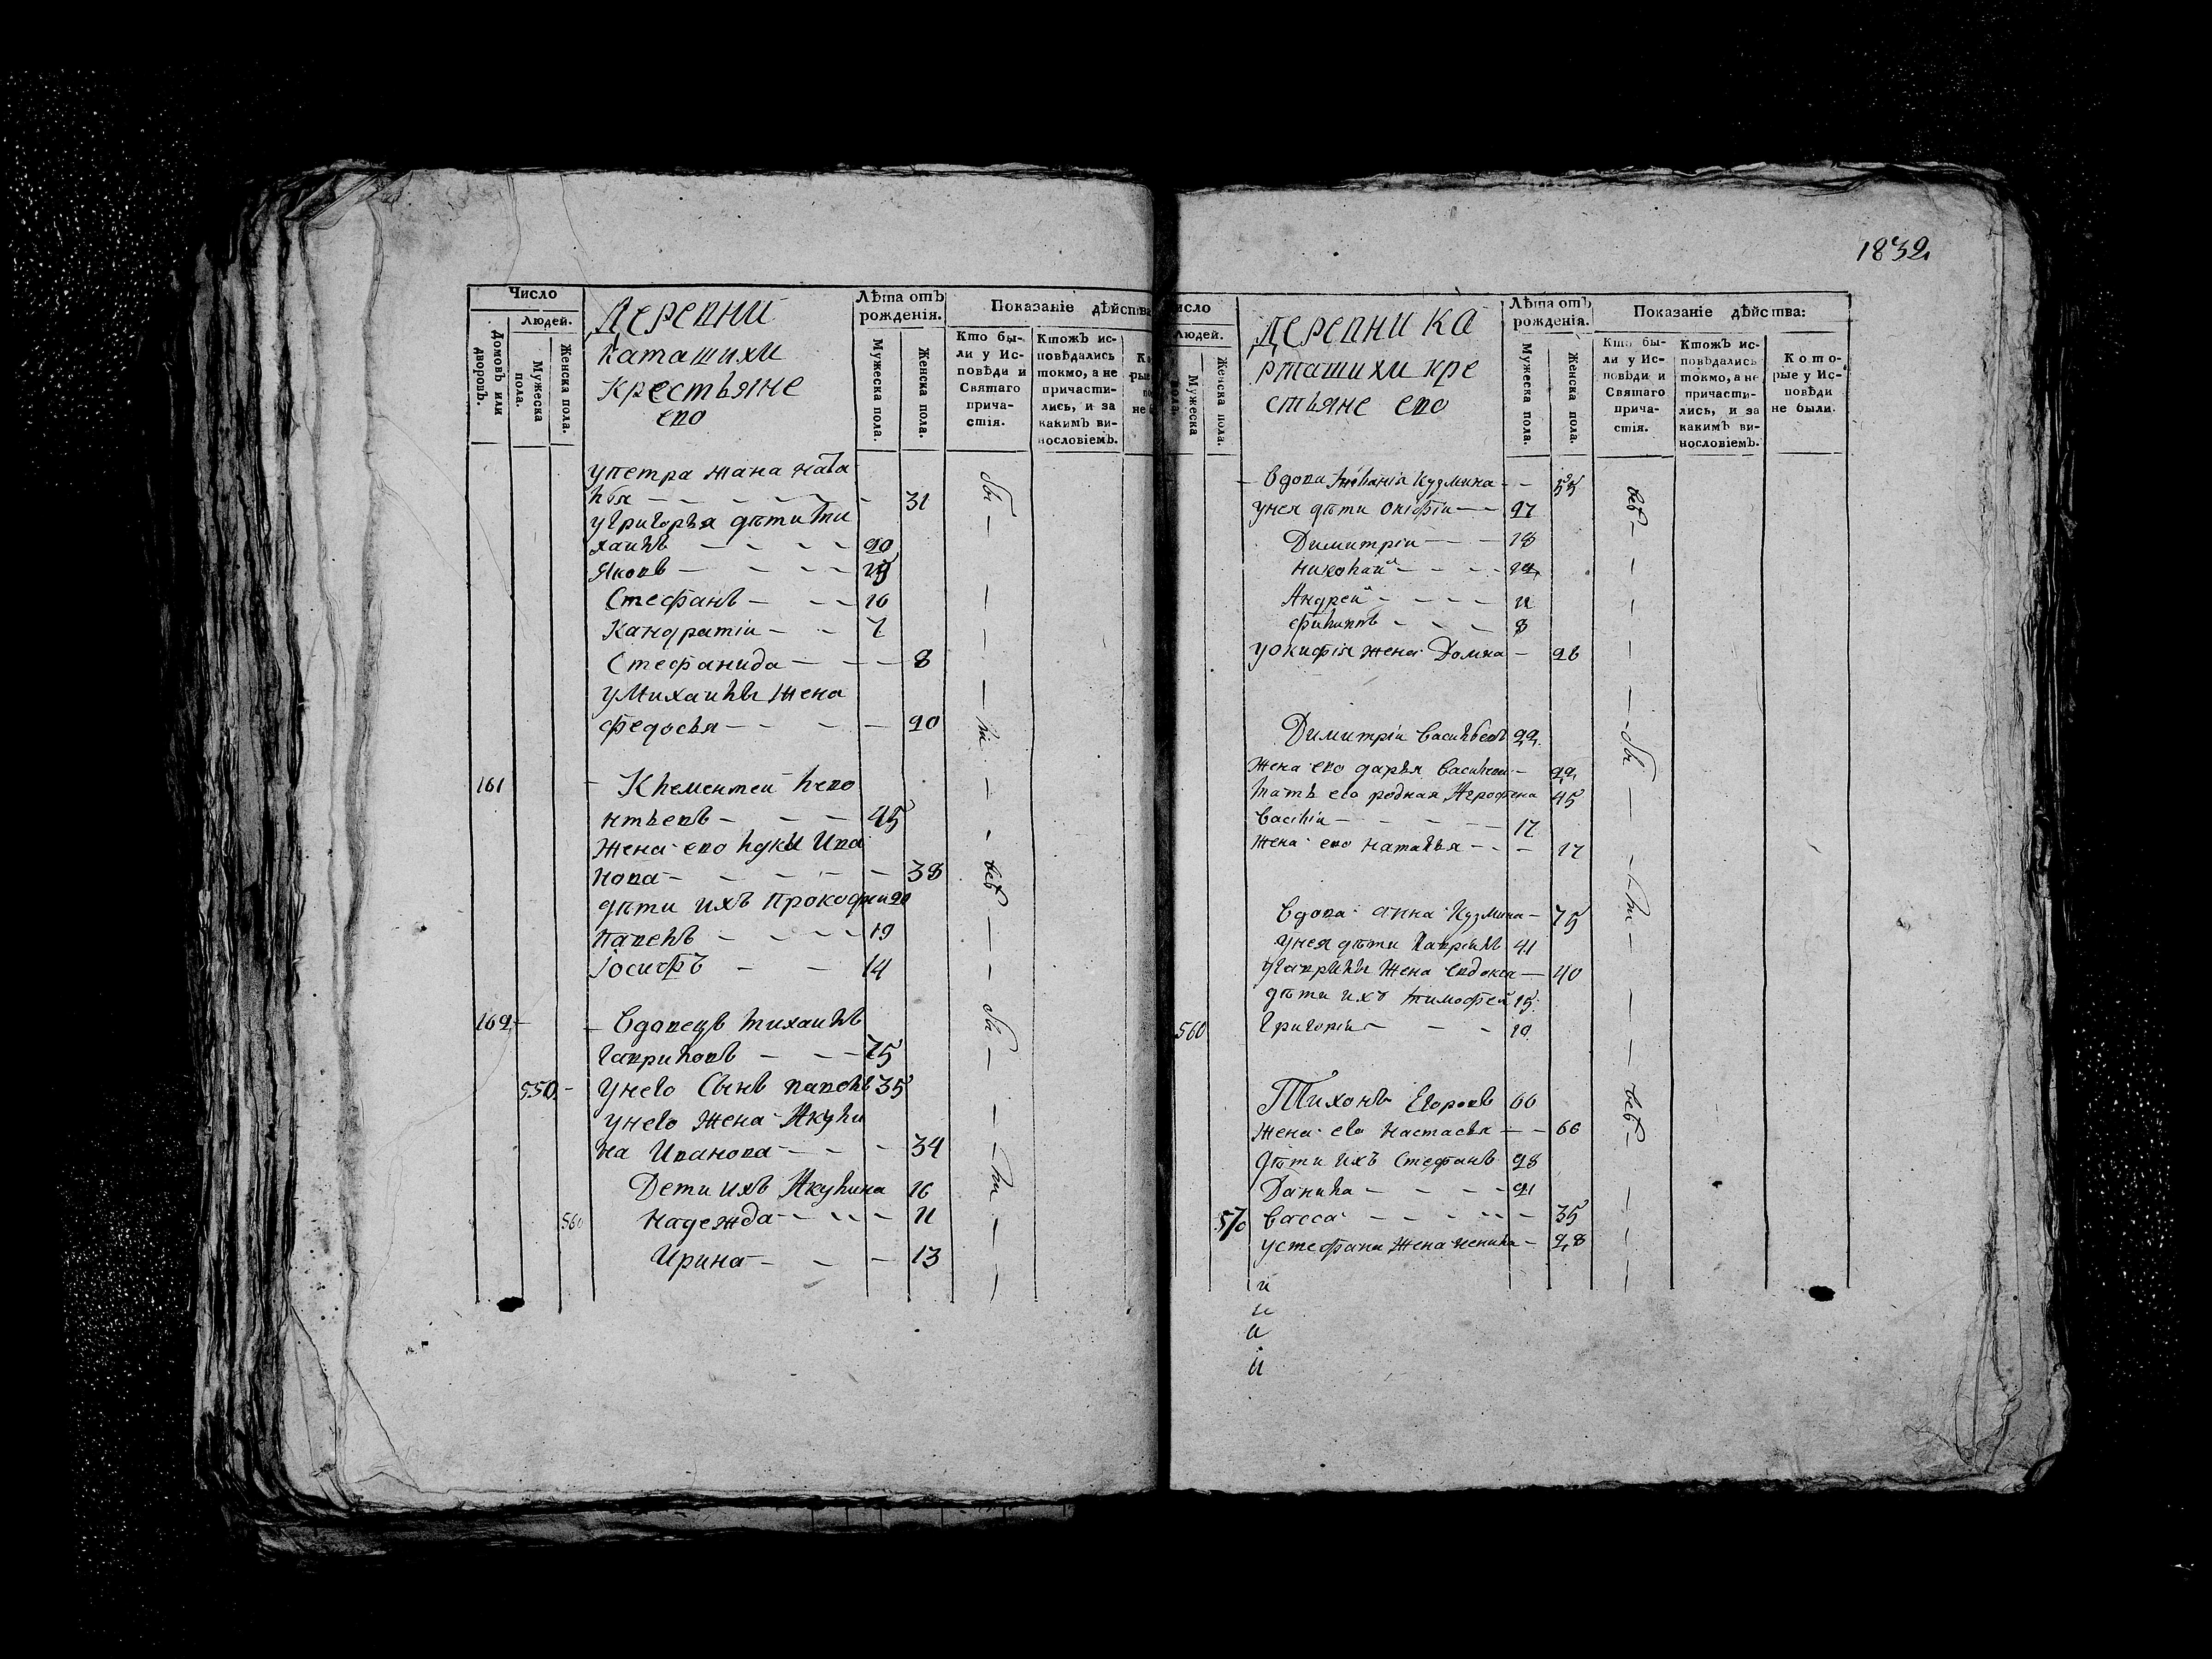 1832
Число
Людей.
Домовъ или дворовъ.
Мужеска пола.
Женска пола.
Деревни
каташихи
крестьяне
ево
Лѣта отъ рожденія.
Мужеска пола.
Женска пола.
Показаніе дѣйства
Кто были у Исповѣди и Святаго причастія.
Ктожъ исповѣдались токмо, а не причастились, и за какимъ винословіемъ.
упетра жана ната
лья 31
угригорья дѣти ми
хаилъ 20
Яковъ
Стефанъ 16
Кандратіи 7
Стефанида 8
умихаилы жена
федосья 20
161 Клементеи лево
нтьевъ 45
жена ево
нова 38
дѣти ихъ прокофеи 20
павелъ 19
Іосифъ 14
162 вдовецъ михаилъ
гавриловъ 75
550 унего сынъ павелъ 35
унего жена Акули
на иванова 34
Дети ихъ Акулина 16
560 надежда 11
Ирина 13
были
число
людей.
Мужеска пола.
Женска пола.
деревни ка
рташихи кре
стьяне ево
Лѣта отъ рожденія.
Мужеска пола.
Женска пола.
Показаніе дѣйства:
Кто были у Исповѣди и Святаго причастія.
Ктожъ исповѣдались токмо, а не причастились, и за какимъ винословіемъ.
Которые у Исповѣди не были.
вдова кузмина 55
унея дѣти 27
Димитріи 18
николаи
Андреи 11
филиппъ 8
жена Домна 26
Димитріи васильевъ 22
жена ево дарья 22
мать его родная Агрофена 45
василіи 17
жена ево наталья 17
вдова анна кузмина 75
унея дѣти гавріилъ 41
угаврилы жена евдокея 40
дѣти ихъ тимофеи 15
560 григоріи 10
Тихонъ Егоровъ 66
жена ево настасья 66
дѣти ихъ стефанъ 28
Данила 21
570 васса 35
устефана жена 28
и
и
и
и